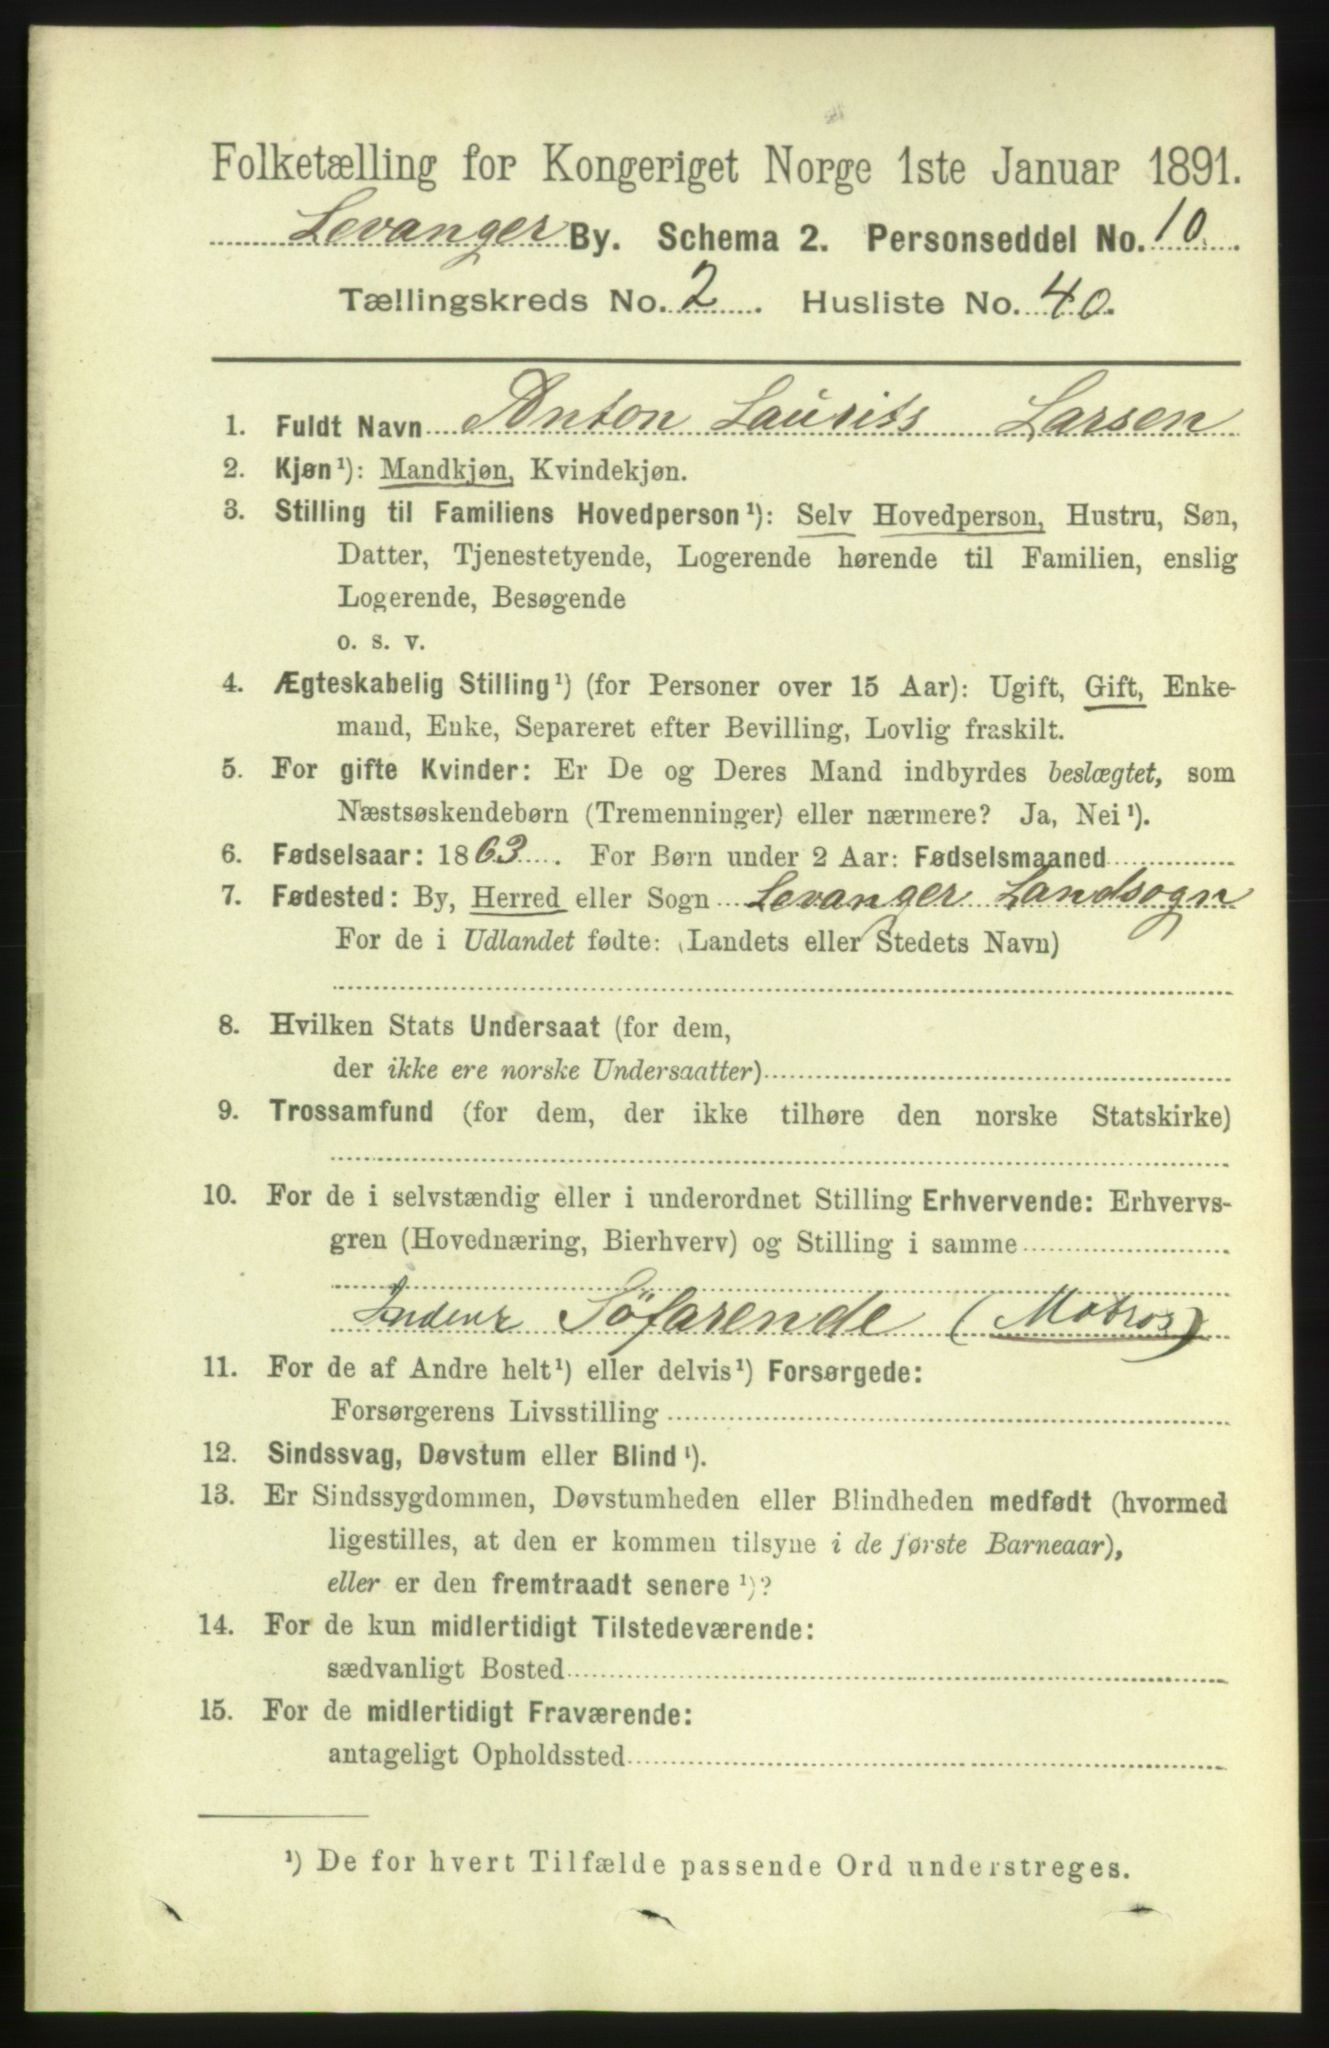 Folketælling for Kongeriget Norge 1ste Januar 1891.
Levanger By. Schema 2. Personseddel No. 10.
Tællingskreds No. 2. Husliste No. 40.
1. Fuldt Navn Anton Laurits Larsen
2. Kjøn¹): Mandkjøn, Kvindekjøn.
3. Stilling til Familiens Hovedperson¹): Selv Hovedperson, Hustru, Søn,
Datter, Tjenestetyende, Logerende hørende til Familien, enslig
Logerende, Besøgende
o. s. v.
4. Ægteskabelig Stilling¹) (for Personer over 15 Aar): Ugift, Gift, Enke-
mand, Enke, Separeret efter Bevilling, Lovlig fraskilt.
5. For gifte Kvinder: Er De og Deres Mand indbyrdes beslægtet, som
Næstsøskendebørn (Tremenninger) eller nærmere? Ja, Nei¹).
6. Fødselsaar: 1863. For Børn under 2 Aar: Fødselsmaaned
7. Fødested: By, Herred eller Sogn Levanger Landsogn
For de i Udlandet fødte: (Landets eller Stedets Navn)
8. Hvilken Stats Undersaat (for dem,
der ikke ere norske Undersaatter)
9. Trossamfund (for dem, der ikke tilhøre den norske Statskirke)
10. For de i selvstændig eller i underordnet Stilling Erhvervende: Erhvervs-
gren (Hovednæring, Bierhverv) og Stilling i samme
Söfarende (Matros)
11. For de af Andre helt¹) eller delvis¹) Forsørgede:
Forsørgerens Livsstilling
12. Sindssvag, Døvstum eller Blind¹).
13. Er Sindssygdommen, Døvstumheden eller Blindheden medfødt (hvormed
ligestilles, at den er kommen tilsyne i de første Barneaar),
eller er den fremtraadt senere¹)?
14. For de kun midlertidigt Tilstedeværende:
sædvanligt Bosted
15. For de midlertidigt Fraværende:
antageligt Opholdssted
¹) De for hvert Tilfælde passende Ord understreges.